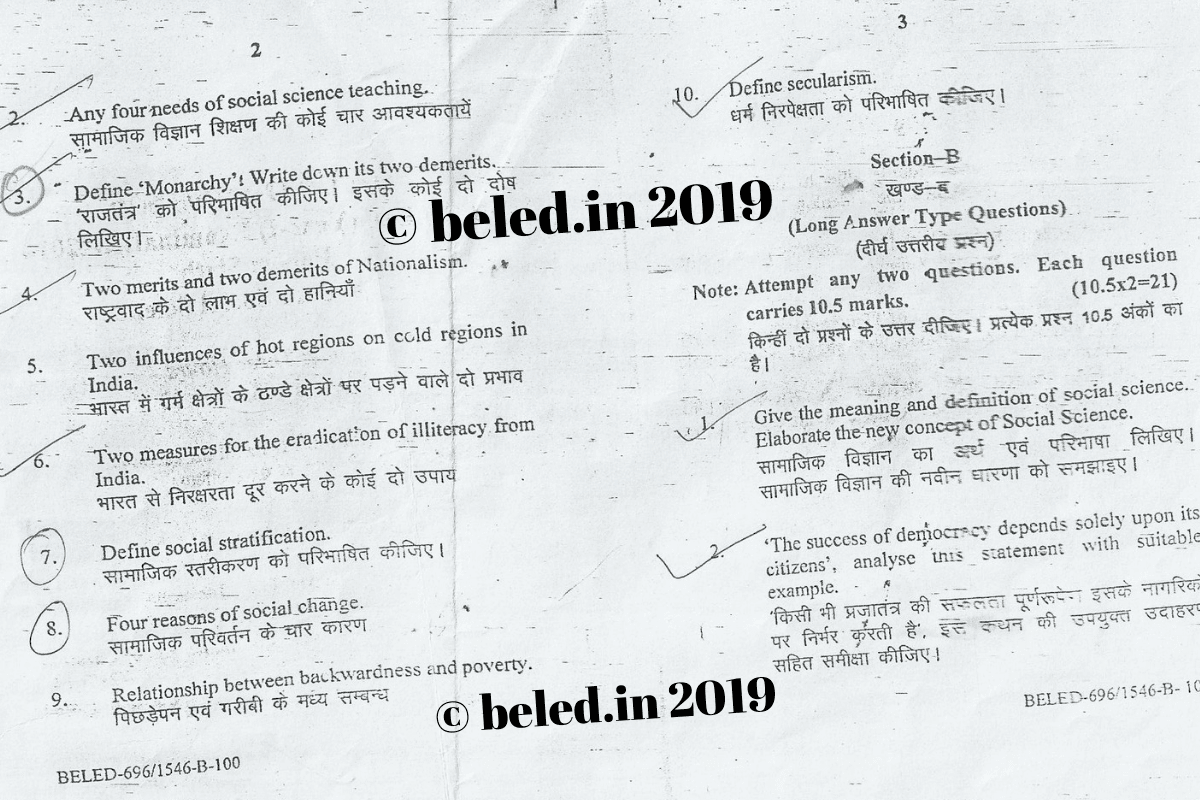 2
2. Any four needs of social science teaching.
सामाजिक विज्ञान शिक्षण की कोई चार आवश्यकतायें
3. Define 'Monarchy'! Write down its two demerits.
'राजतंत्र' को परिभाषित कीजिए। इसके कोई दो दोष
लिखिए।
4. Two merits and two demerits of Nationalism.
राष्ट्रवाद के दो लाभ एवं दो हानियाँ
5. Two influences of hot regions on cold regions in
India.
भारत में गर्म क्षेत्रों के ठण्डे क्षेत्रों पर पड़ने वाले दो प्रभाव
6. Two measures for the eradication of illiteracy from
India.
भारत से निरक्षरता दूर करने के कोई दो उपाय
7. Define social stratification.
सामाजिक स्तरीकरण को परिभाषित कीजिए।
8. Four reasons of social change.
सामाजिक परिवर्तन के चार कारण
9. Relationship between backwardness and poverty.
पिछड़ेपन एवं गरीबी के मध्य सम्बन्ध
BELED-696/1546-B-100
3
10. Define secularism.
धर्म निरपेक्षता को परिभाषित कीजिए।
Section-B
खण्ड-ब
(Long Answer Type Questions)
(दीर्घ उत्तरीय प्रश्न)
Note: Attempt any two questions. Each question
carries 10.5 marks. (10.5x2=21)
किन्हीं दो प्रश्नों के उत्तर दीजिए। प्रत्येक प्रश्न 10.5 अंकों का
है।
1. Give the meaning and definition of social science.
Elaborate the new concept of Social Science.
सामाजिक विज्ञान का अर्थ एवं परिभाषा लिखिए।
सामाजिक विज्ञान की नवीन धारणा को समझाइए।
2. 'The success of democracy depends solely upon its
citizens', analyse this statement with suitable
example.
'किसी भी प्रजातंत्र की सफलता पूर्णरूपेण इसके नागरिकों
पर निर्भर करती है', इस कथन की उपयुक्त उदाहरण
सहित समीक्षा कीजिए।
BELED-696/1546-B- 10
© beled.in 2019
© beled.in 2019